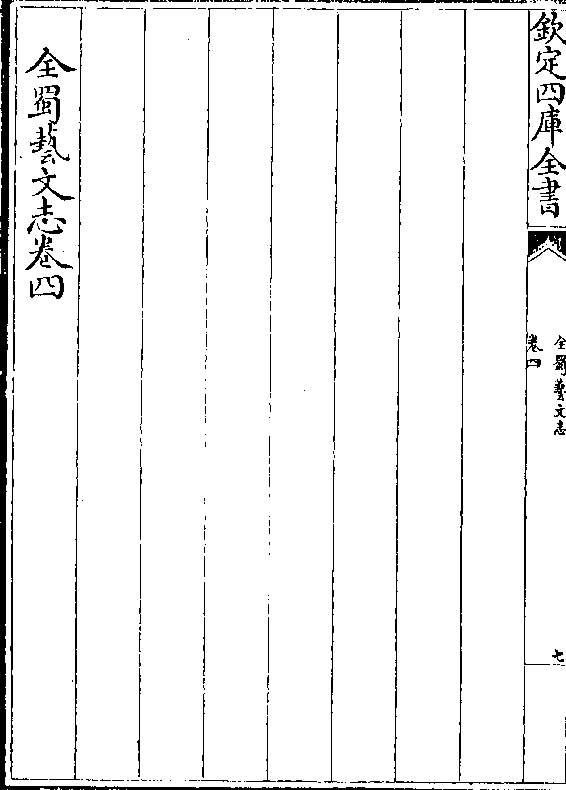 欽定四庫全書
全蜀藝文志
卷四
七
全蜀藝文志卷四